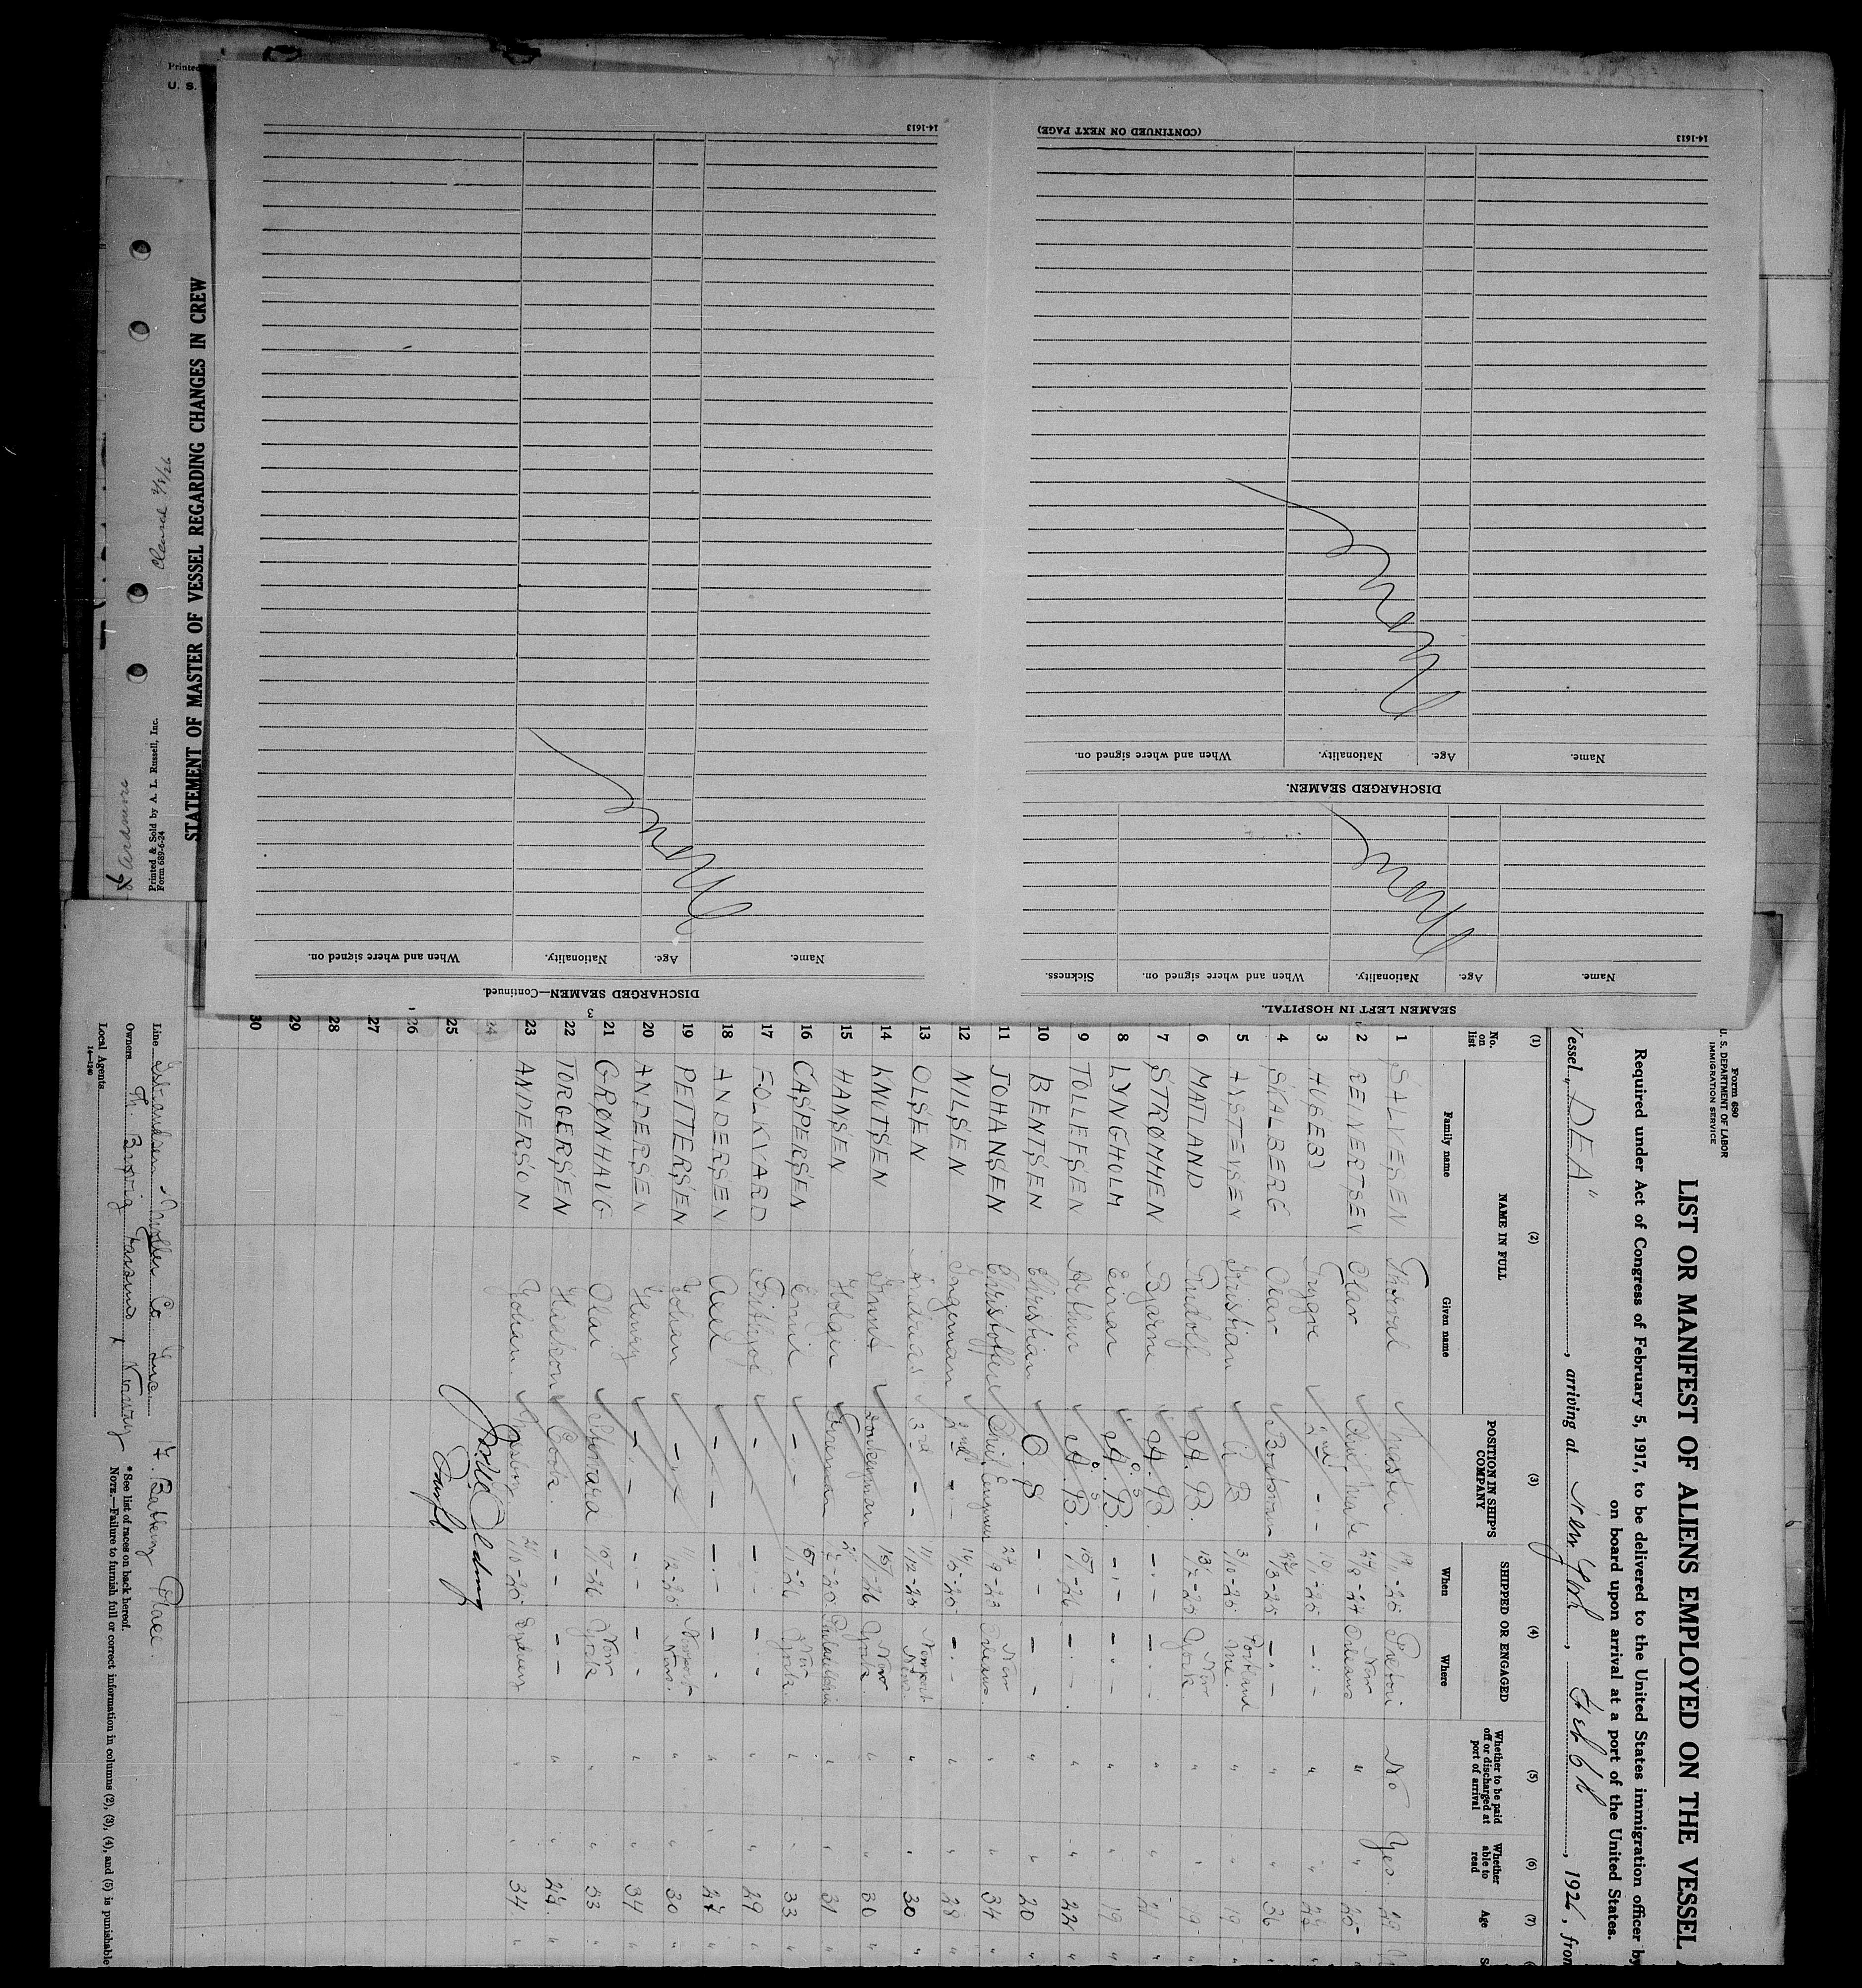 Printed
U. S.
Cleared 2/8/26
STATEMENT OF MASTER OF VESSEL REGARDING CHANGES IN CREW
Printed & Sold by A. L. Russell, Inc.
Form 689-6-24
14-1613
DISCHARGED SEAMEN—Continued.
Name. Age. Nationality. When and where signed on.
None
3
SEAMEN LEFT IN HOSPITAL.
Name. Age. Nationality. When and where signed on. Sickness.
None
DISCHARGED SEAMEN.
Name. Age. Nationality. When and where signed on.
None
(CONTINUED ON NEXT PAGE)
14-1613
Form 680
U. S. DEPARTMENT OF LABOR
IMMIGRATION SERVICE
LIST OR MANIFEST OF ALIENS EMPLOYED ON THE VESSEL
Required under Act of Congress of February 5, 1917, to be delivered to the United States immigration officer by
on board upon arrival at a port of the United States.
Vessel "DEA", arriving at New York, Feb 6th, 1926, from
(1) (2) (3) (4) (5) (6) (7)
No. on list NAME IN FULL POSITION IN SHIP'S COMPANY SHIPPED OR ENGAGED Whether to be paid off or discharged at port of arrival Whether able to read Age
Family name Given name When Where
1 SALVESEN Thorval Master No Yes
2 REINERTSEN Olav Chief Mate 27/8-24 New Orleans " "
3 HUSEBY Trygve 2nd - - - - - " "
4 SKALBERG Olav Boatsman - - - " " 36
5 AASTENSEN Kristian A B 3/10-25 Portland Me. " " 19
6 MATLAND Rudolf A. B. New York " " 19
7 STRØMMEN Bjarne A. B. - - - - " " 21
8 LYNGHOLM Einar A. B. O. S - - - - " " 19
9 TOLLEFSEN Arthur A. B. O. S 15/1-26 - - " " 22
10 BENTSEN Christian O. S - - - - " " 20
11 JOHANSEN Christoffer Chief Engineer 27/9-23 New Orleans " " 34
12 NILSEN Ingeman 2nd - - - - " " 28
13 OLSEN Andreas 3rd - - 11/12-25 Newport News " " 30
14 KNUTSEN Knut Donkeyman 15/1-26 New York " " 30
15 HANSEN Holger Fireman Philadelphia " " 31
16 CASPERSEN Emil - - 15/1-26 New York " " 33
17 FOLKVARD Frithjof - - - - - - " " 29
18 ANDERSEN Axel - - - - - - " " 27
19 PETTERSEN Johan - - 11/12-25 Newport News " " 30
20 ANDERSEN Henry - - - - - - " " 34
21 GRØNHAUG Olai Steward 15/1-26 New York " " 33
22 TORGERSEN Haakon Cook - - - - " " 24
23 ANDERSON Johan Messboy " " 34
24
25
26
27
28
29
30
Line Isbrandtsen-Moller Co Inc. 17 Battery Place.
Owners Th. Brøvig Farsund Norway
Local Agents
14—1240
* See list of races on back hereof.
NOTE.—Failure to furnish full or correct information in columns (2), (3), (4), and (5) is punishable